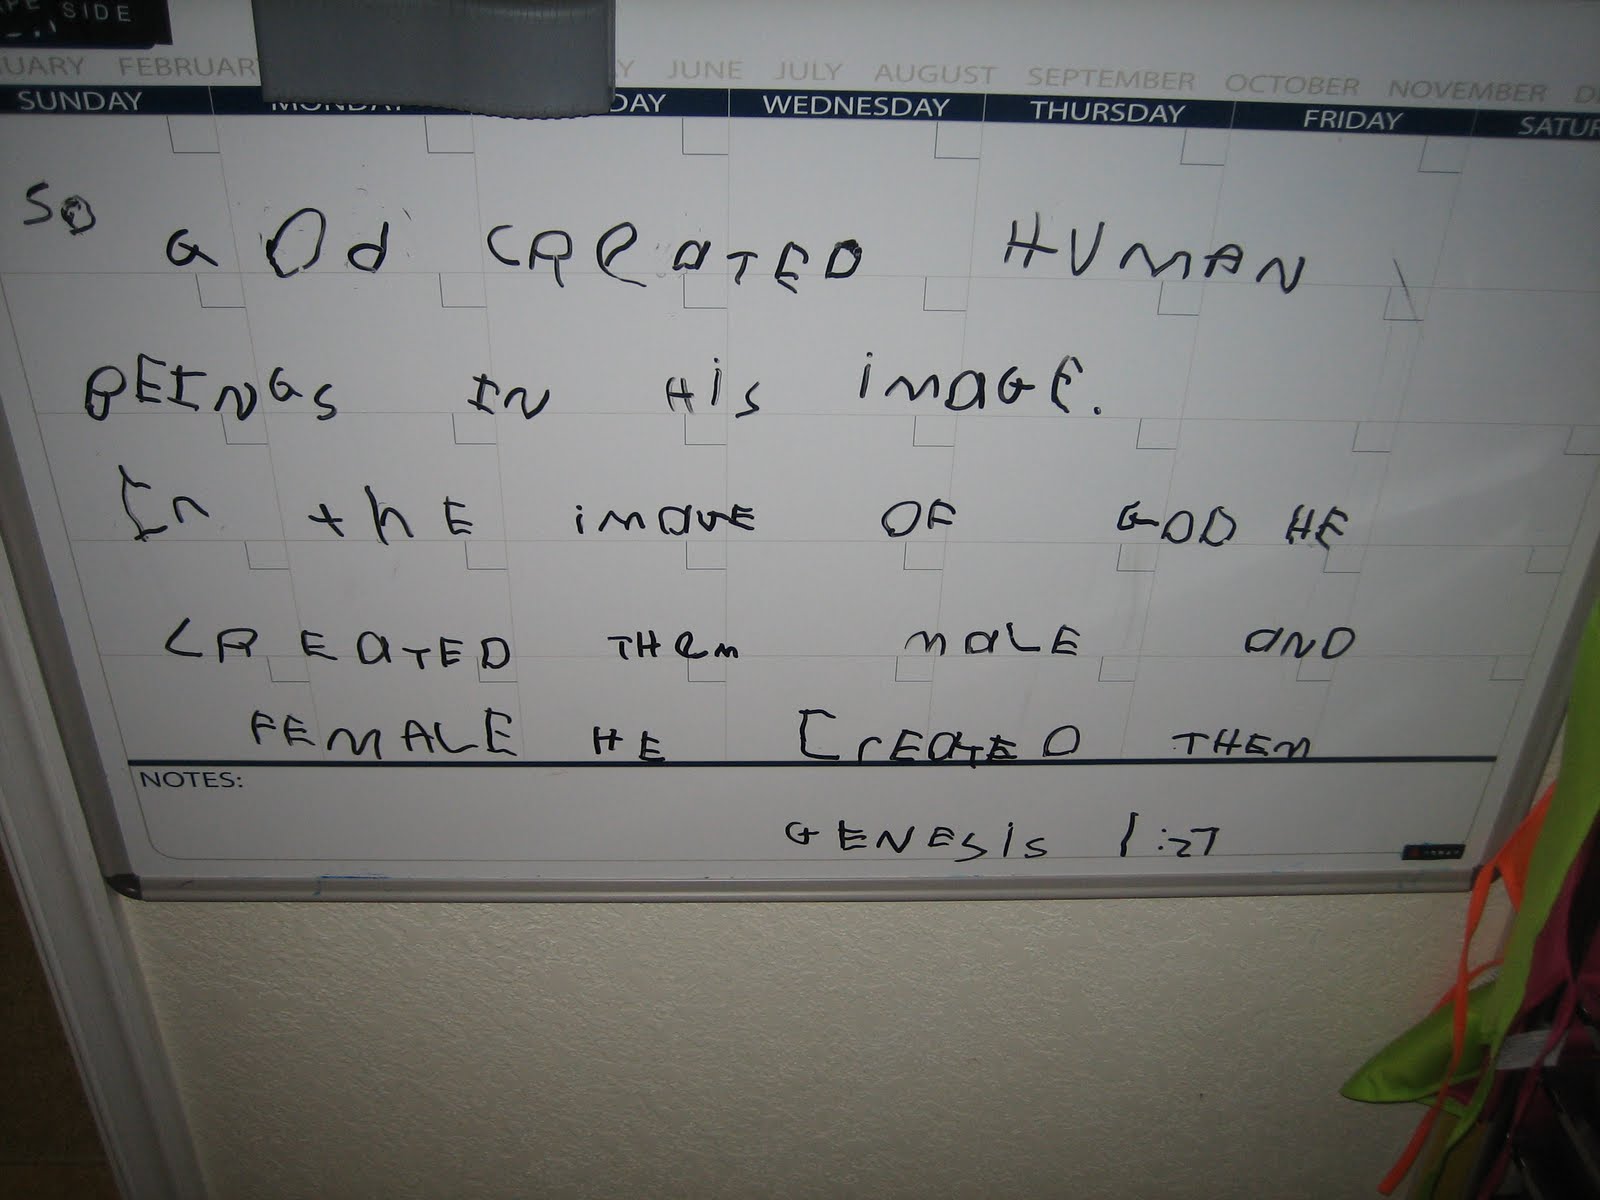 PE SIDE
UARY FEBRUAR Y JUNE JULY AUGUST SEPTEMBER OCTOBER NOVEMBER D
SUNDAY MONDAY DAY WEDNESDAY THURSDAY FRIDAY SATUR
SO GOd CREaTED HUMAN
BEINGS IN HiS imaGE.
In thE imaGE OF GOD HE
CREaTED THem maLE aND
FEMALE HE CrEaTED THEm
NOTES:
GENESiS 1:27